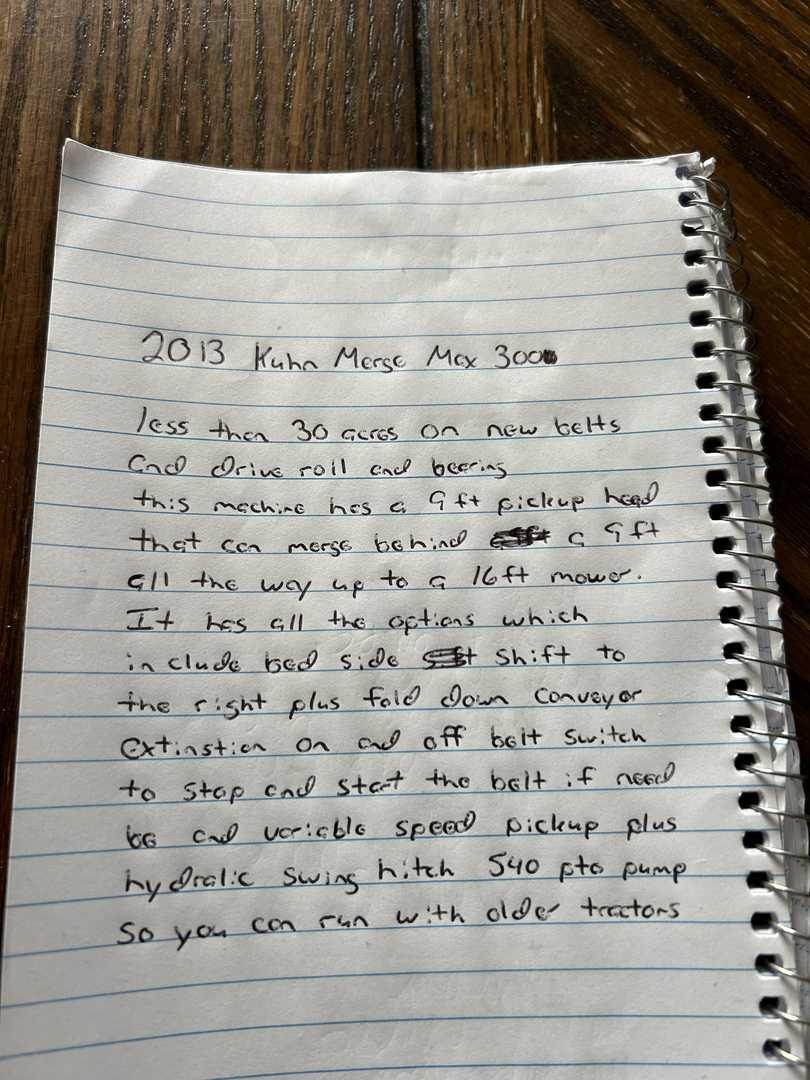 2013 Kuhn Merge Max 300
less than 30 acres on new belts
and drive roll and bearing
this machine has a 9 ft pickup head
that can merge behind a 9 ft
all the way up to a 16 ft mower.
It has all the options which
include bed side shift to
the right plus fold down conveyor
extinstion on and off belt switch
to stop and start the belt if need
be and variable speed pickup plus
hydralic swing hitch 540 pto pump
so you can run with older tractors